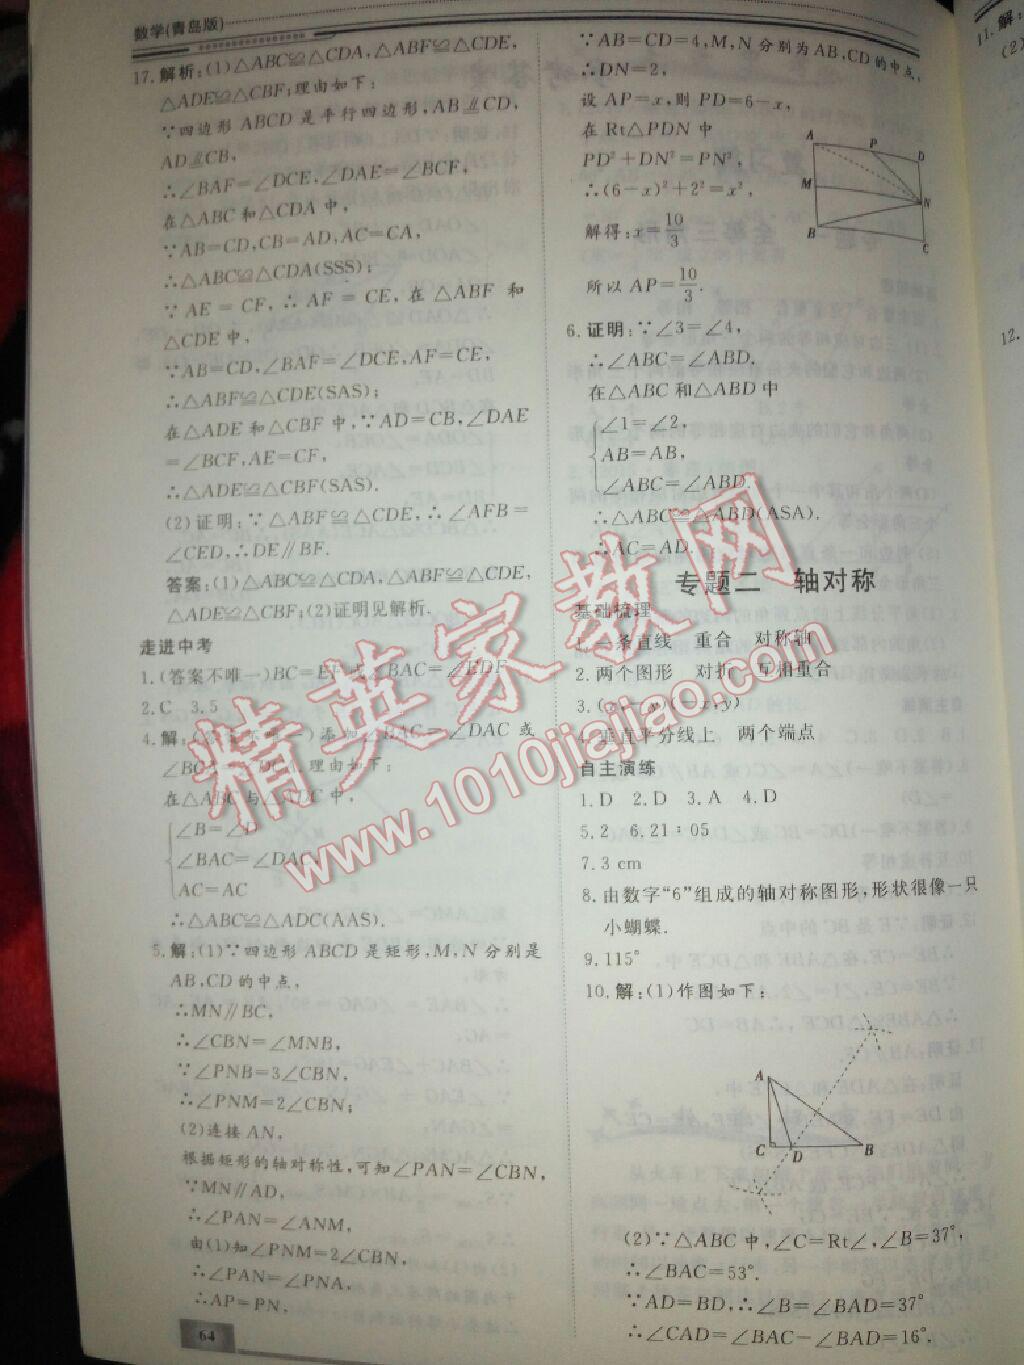 数学(青岛版)
17.解析:(1)△ABC≌△CDA,△ABF≌△CDE,
△ADE≌△CBF;理由如下:
∵四边形 ABCD 是平行四边形,AB∥CD,
AD∥CB,
∴∠BAF=∠DCE,∠DAE=∠BCF,
在△ABC 和△CDA 中,
∵AB=CD,CB=AD,AC=CA,
∴△ABC≌△CDA(SSS);
∵AE=CF,∴AF=CE,在△ABF 和
△CDE 中,
∵AB=CD,∠BAF=∠DCE,AF=CE,
∴△ABF≌△CDE(SAS);
在△ADE 和△CBF 中,∵AD=CB,∠DAE
=∠BCF,AE=CF,
∴△ADE≌△CBF(SAS).
(2)证明:∵△ABF≌△CDE,∴∠AFB=
∠CED,∴DE∥BF.
答案:(1)△ABC≌△CDA,△ABF≌△CDE,
△ADE≌△CBF;(2)证明见解析.
走进中考
1.(答案不唯一)BC=EF 或∠BAC=∠EDF
2.C 3.5
4.解:(答案不唯一)添加∠BAC=∠DAC 或
∠BCA=∠DCA,理由如下:
在△ABC 与△ADC 中,
∠B=∠D
∠BAC=∠DAC,
AC=AC
∴△ABC≌△ADC(AAS).
5.解:(1)∵四边形 ABCD 是矩形,M,N 分别是
AB,CD 的中点,
∴MN∥BC,
∴∠CBN=∠MNB,
∵∠PNB=3∠CBN,
∴∠PNM=2∠CBN;
(2)连接 AN,
根据矩形的轴对称性,可知∠PAN=∠CBN,
∵MN∥AD,
∴∠PAN=∠ANM,
由(1)知∠PNM=2∠CBN,
∴∠PAN=∠PNA,
∴AP=PN,
64
∵AB=CD=4,M,N 分别为 AB,CD 的中点,
∴DN=2,
设 AP=x,则 PD=6-x,
在 Rt△PDN 中
PD²+DN²=PN²,
∴(6-x)²+2²=x²,
解得:x=10/3
所以 AP=10/3.
A P D
M N
B C
6.证明:∵∠3=∠4,
∴∠ABC=∠ABD,
在△ABC 和△ABD 中
∠1=∠2,
AB=AB,
∠ABC=∠ABD.
∴△ABC≌△ABD(ASA).
∴AC=AD.
专题二 轴对称
基础梳理
1.一条直线 重合 对称轴
2.两个图形 对折 互相重合
3.(x,-y)(-x,y)
4.垂直平分线上 两个端点
自主演练
1.D 2.D 3.A 4.D
5.2 6.21:05
7.3 cm
8.由数字“6”组成的轴对称图形,形状很像一只
小蝴蝶.
9.115°
10.解:(1)作图如下:
A
C D B
(2)∵△ABC 中,∠C=Rt∠,∠B=37°,
∴∠BAC=53°.
∵AD=BD,∴∠B=∠BAD=37°
∴∠CAD=∠BAC-∠BAD=16°.
11.解:
(2)
12.
精英家教网
www.1010jiajiao.com